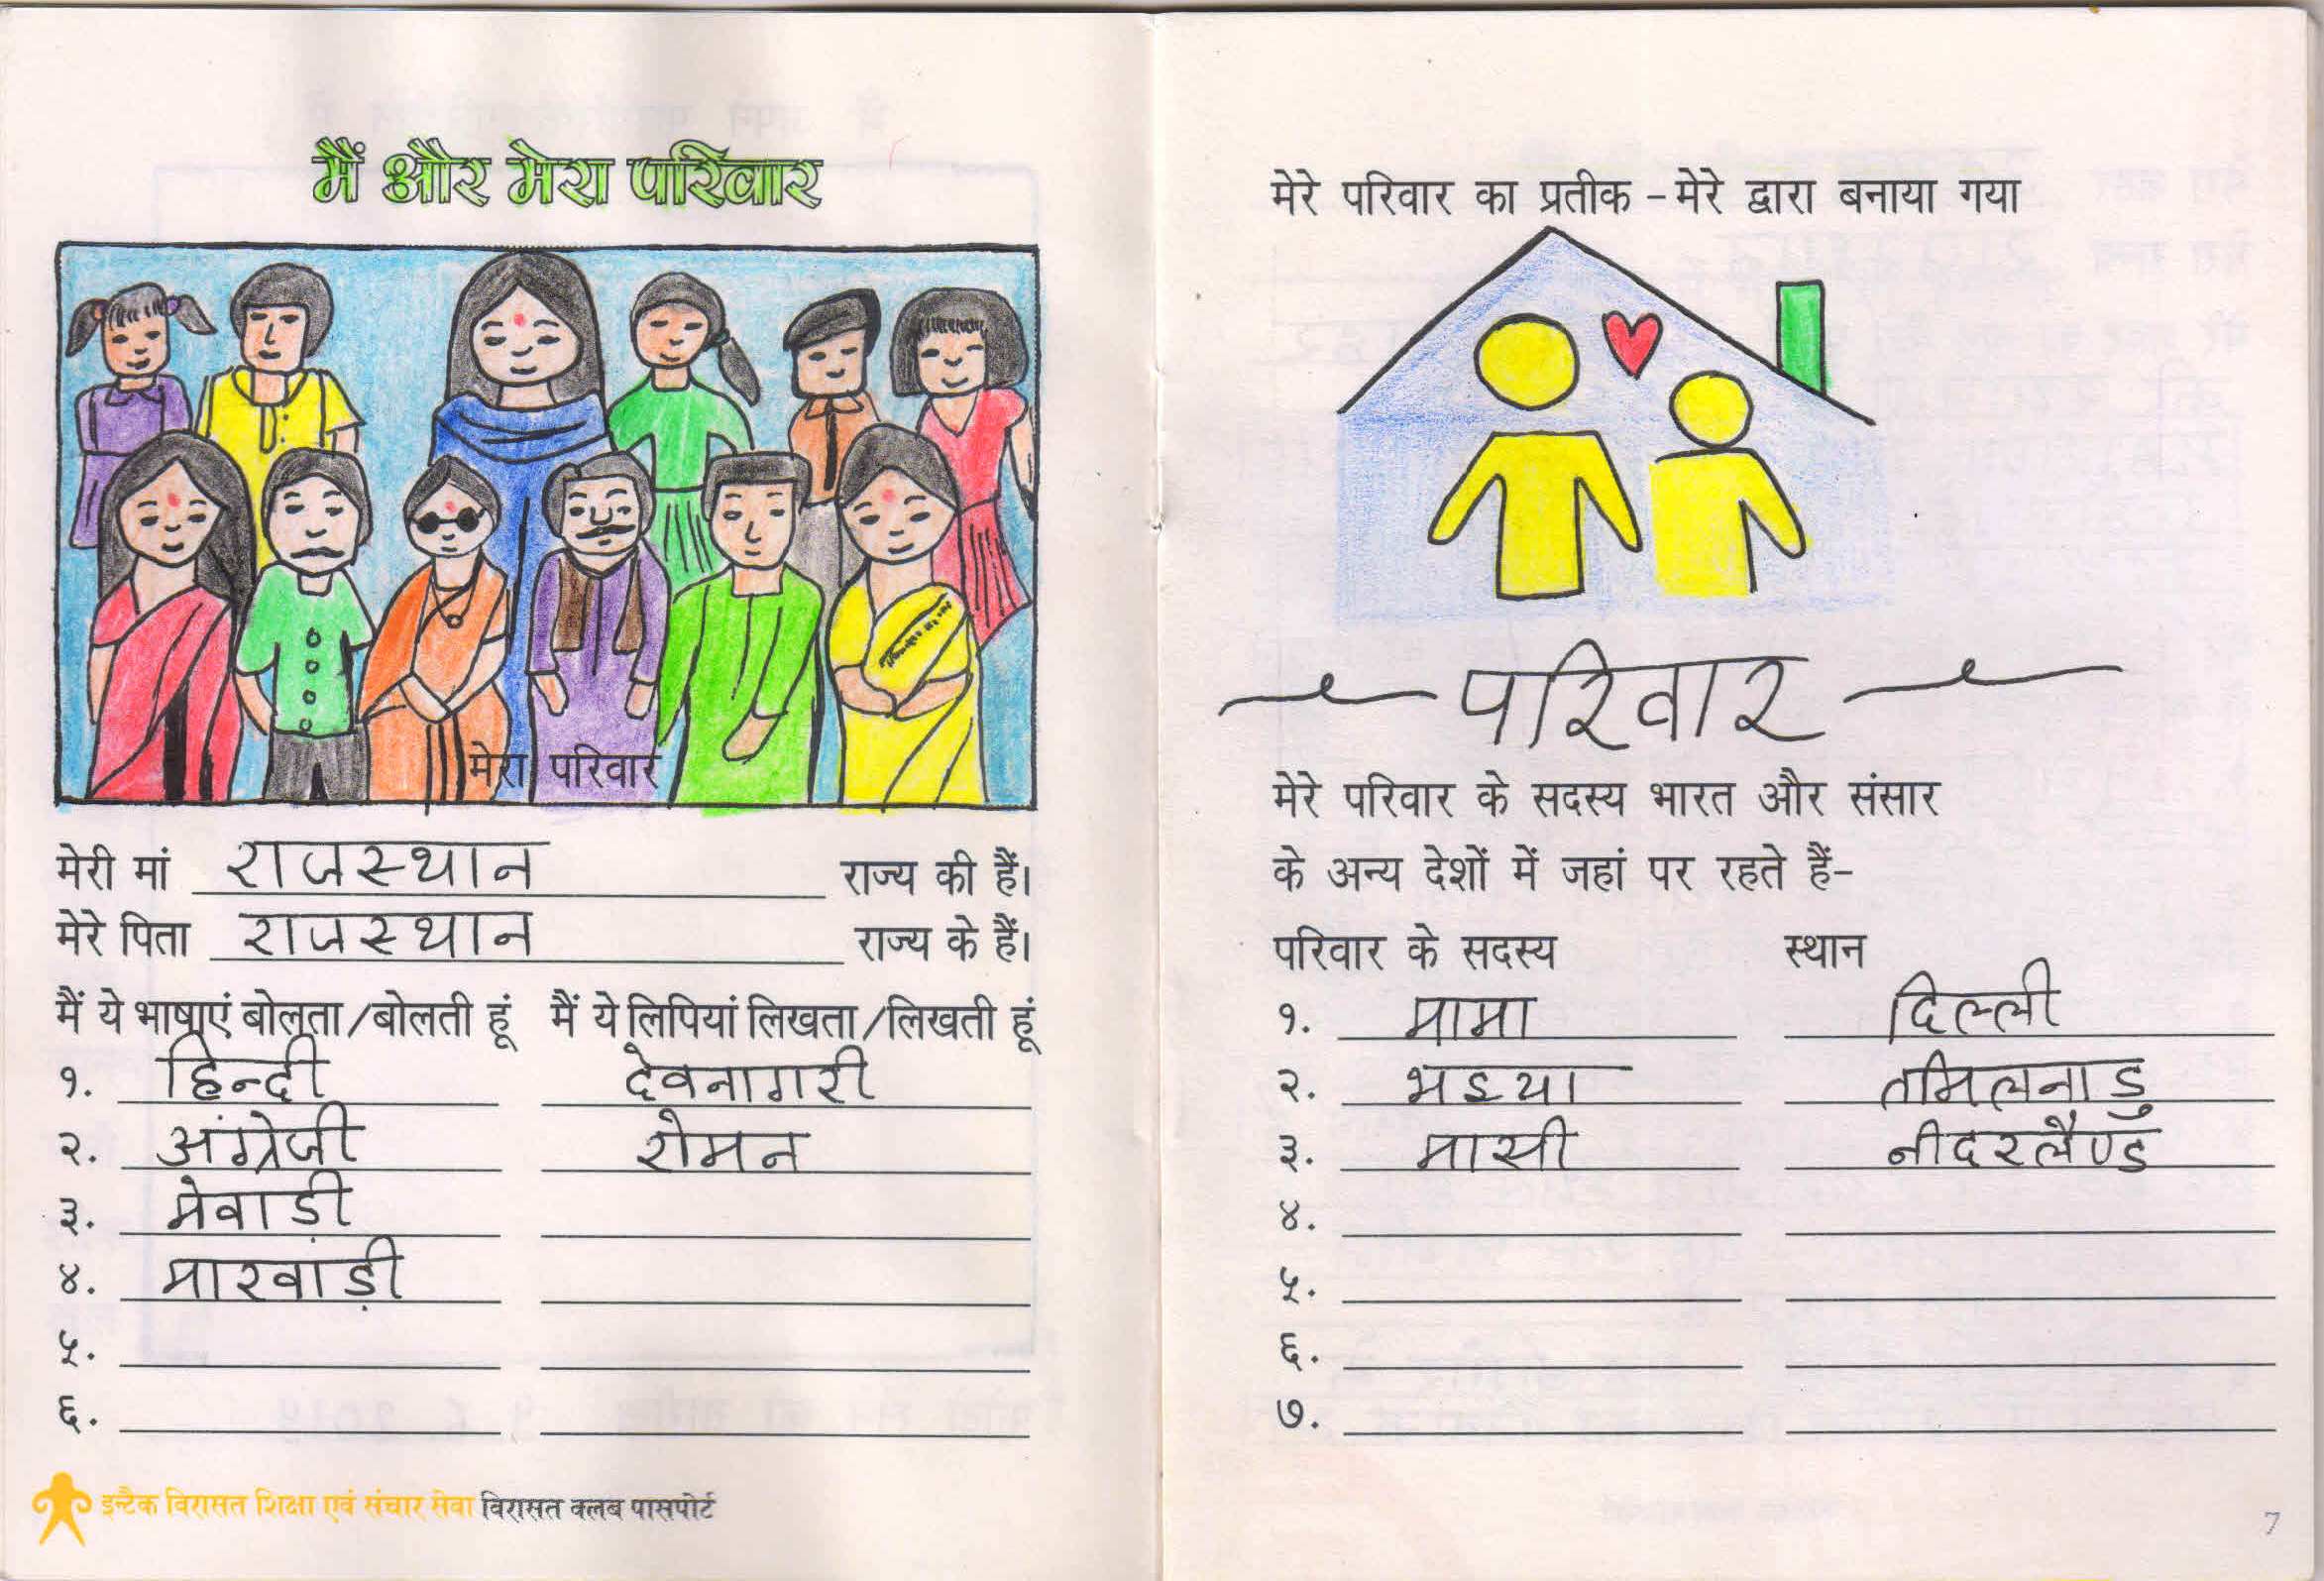 मैं और मेरा परिवार
मेरा परिवार
मेरी मां राजस्थान राज्य की हैं।
मेरे पिता राजस्थान राज्य के हैं।
मैं ये भाषाएं बोलता/बोलती हूं मैं ये लिपियां लिखता/लिखती हूं
१. हिन्दी देवनागरी
२. अंग्रेजी रोमन
३. मेवाड़ी
४. मारवाड़ी
५.
६.
इन्टैक विरासत शिक्षा एवं संचार सेवा विरासत क्लब पासपोर्ट
मेरे परिवार का प्रतीक - मेरे द्वारा बनाया गया
परिवार
मेरे परिवार के सदस्य भारत और संसार
के अन्य देशों में जहां पर रहते हैं-
परिवार के सदस्य स्थान
१. मामा दिल्ली
२. भइया तमिलनाडु
३. मासी नीदरलैण्ड
४.
५.
६.
७.
7